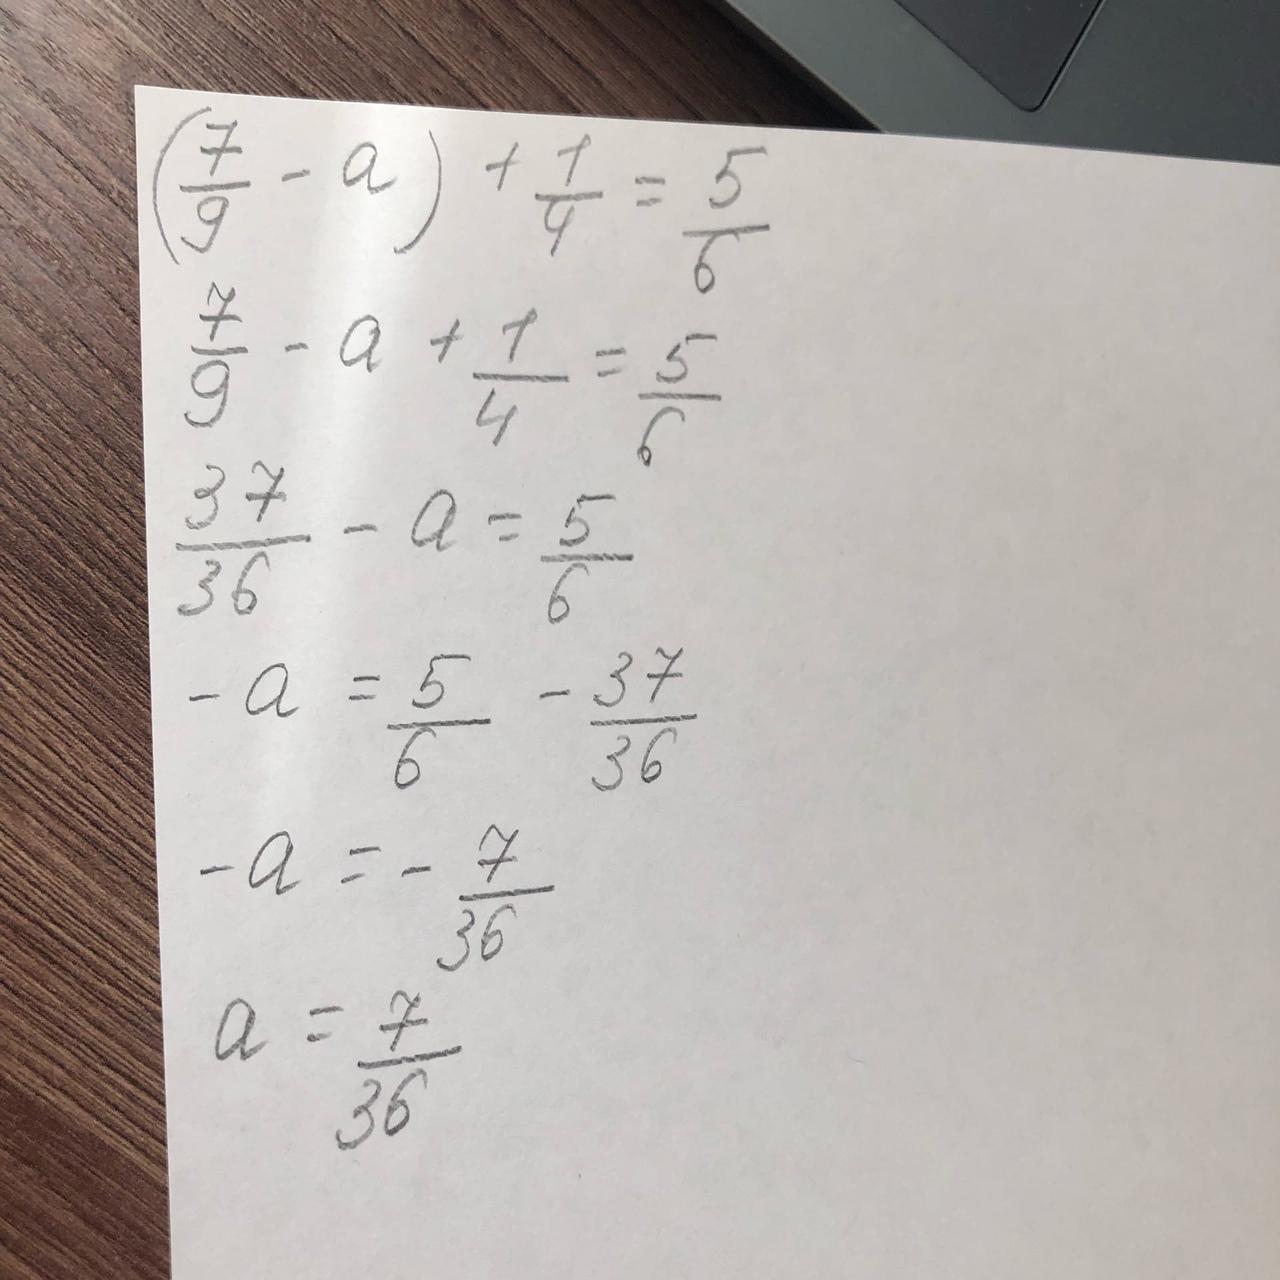 (7/9 - a) + 1/4 = 5/6
7/9 - a + 1/4 = 5/6
37/36 - a = 5/6
- a = 5/6 - 37/36
- a = - 7/36
a = 7/36